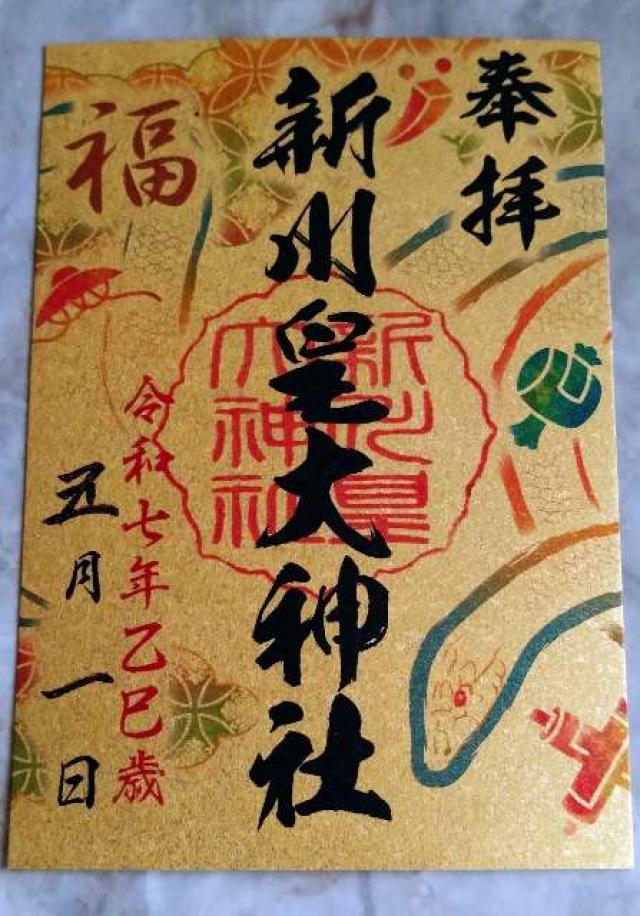 奉拝
新川皇大神社
新川皇
大神社
福
令和七年乙巳歳
丑月一日